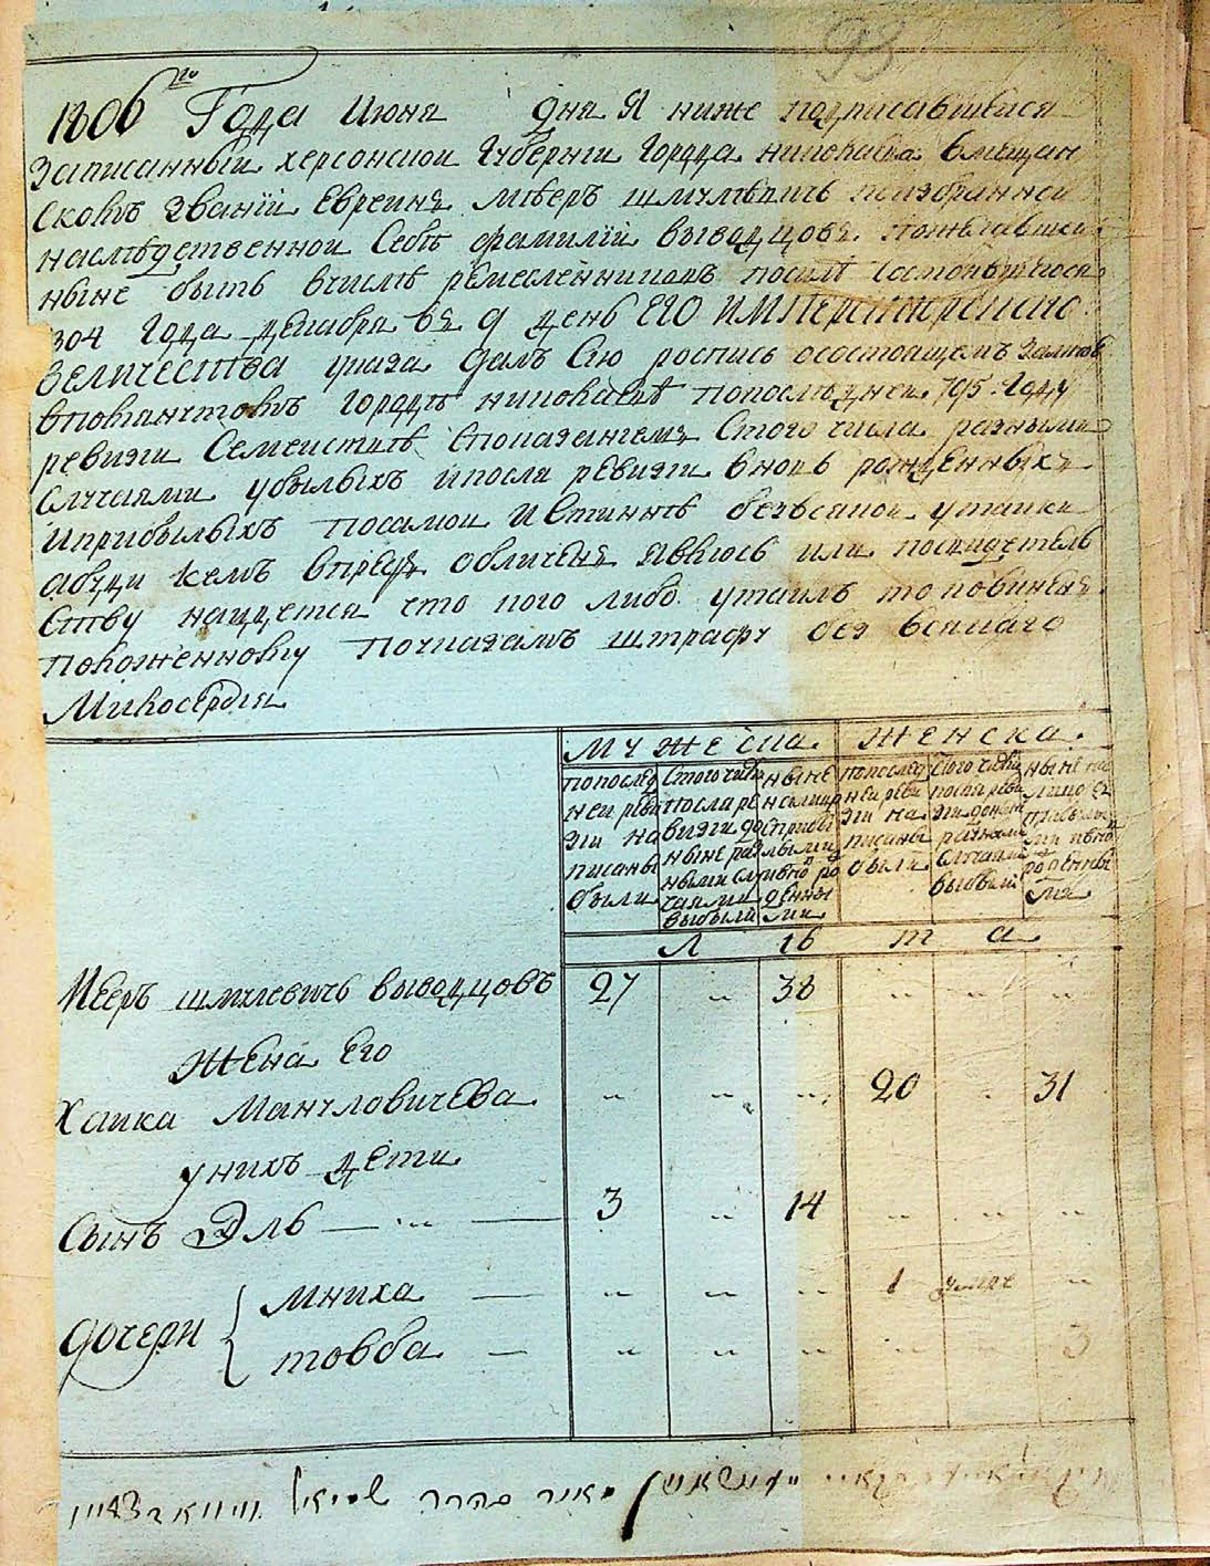 93
1806го Года Июня дня Я ниже подписавшейся
Записанный херсонской Губернии Города николаева вмещан
скомъ званïи Евреинъ Мѣеръ шмулѣвичь поизбранной
наслѣдственной себѣ фамилïи выводцовъ пожелавшей
ныне быть вчислѣ ремесленниковъ послѣ состоявшегося
804 Года декабря въ 9 день ЕГО ИМПераторскаго
Величества указа далъ сïю роспись осостоящемъ
городѣ николаевѣ попоследней 795 Году
ревизи Семействѣ споказанïемъ стого числа разными
случаями убылыхъ ипосля ревизи вновь рожденныхъ
иприбылыхъ посамой Истиннѣ безвсякой утайки
абуди кемъ впредь обличенъ явлюсь или посвидетель
ству найдется что кого либо утаилъ то повиненъ
положенному поуказамъ штрафу без всякаго
Милосердïя
Мужеска. Женска.
попослед
ней реви
зи на
писаны
были
Стого числа
посля ре
визи до
ныне раз
ными слу
чаями
выбыли
ныне
налицо
сприбы
лыми
ивно ро
денны
ми
попослед
ней реви
зи на
писаны
были
Стого числа
посля реви
зи доныне
разными
случаями
выбыли
ныне на
лицо съ
прибылы
ми ивно
рожденны
ми
Л ѣ т а
Мееръ шмулевичь выводцовъ 27 " 38 " " "
Жена Его
Хайка Мануловичева " " " 20 " 31
унихъ дети
Сынъ Эль — " — 3 " 14 " " "
дочери { Мниха — " " " 1 умре "
товба — " " " " " 3
מאיר במהרר שמואל וויוואדצאוו